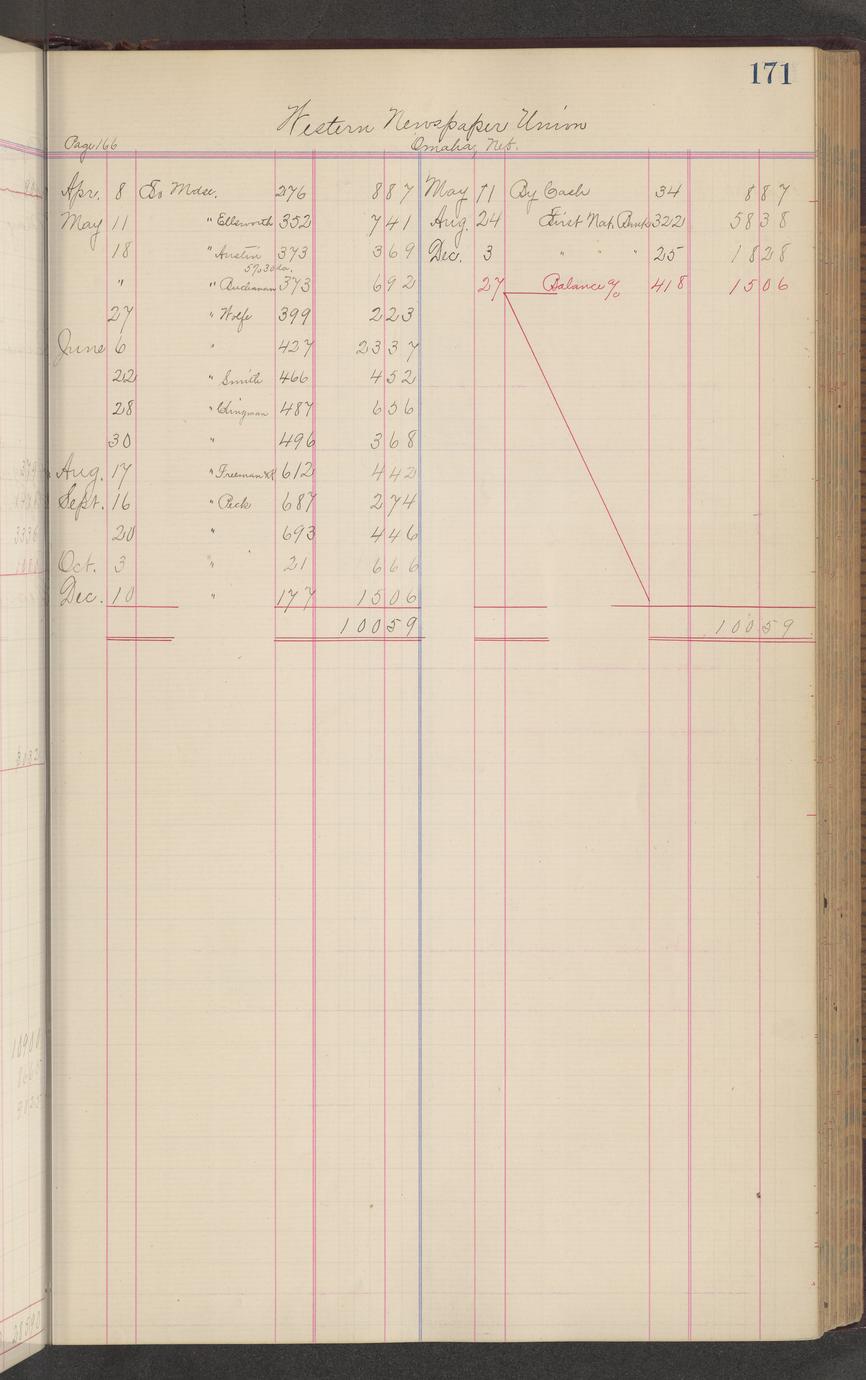 171
Western Newspaper Union
Page 166 Omaha, Neb.
Apr. 8 To Mdse. 276 8 87 May 11 By Cash 34 8 87
May 11 " Ellsworth 352 7 41 Aug. 24 First Nat. Bank 322 58 38
18 " Austin 373 3 69 Dec. 3 " " " 25 18 28
5% 30 da.
" " Buchanan 373 6 92 27 Balance % 418 15 06
27 " Wolfe 399 2 23
June 6 " 427 23 37
22 " Smith 466 4 52
28 " Kingman 487 6 56
30 " 496 3 68
Aug. 17 " Freeman 612 4 42
Sept. 16 " Peck 687 2 74
20 " 693 4 46
Oct. 3 " 21 6 66
Dec. 10 " 177 15 06
100 59 100 59